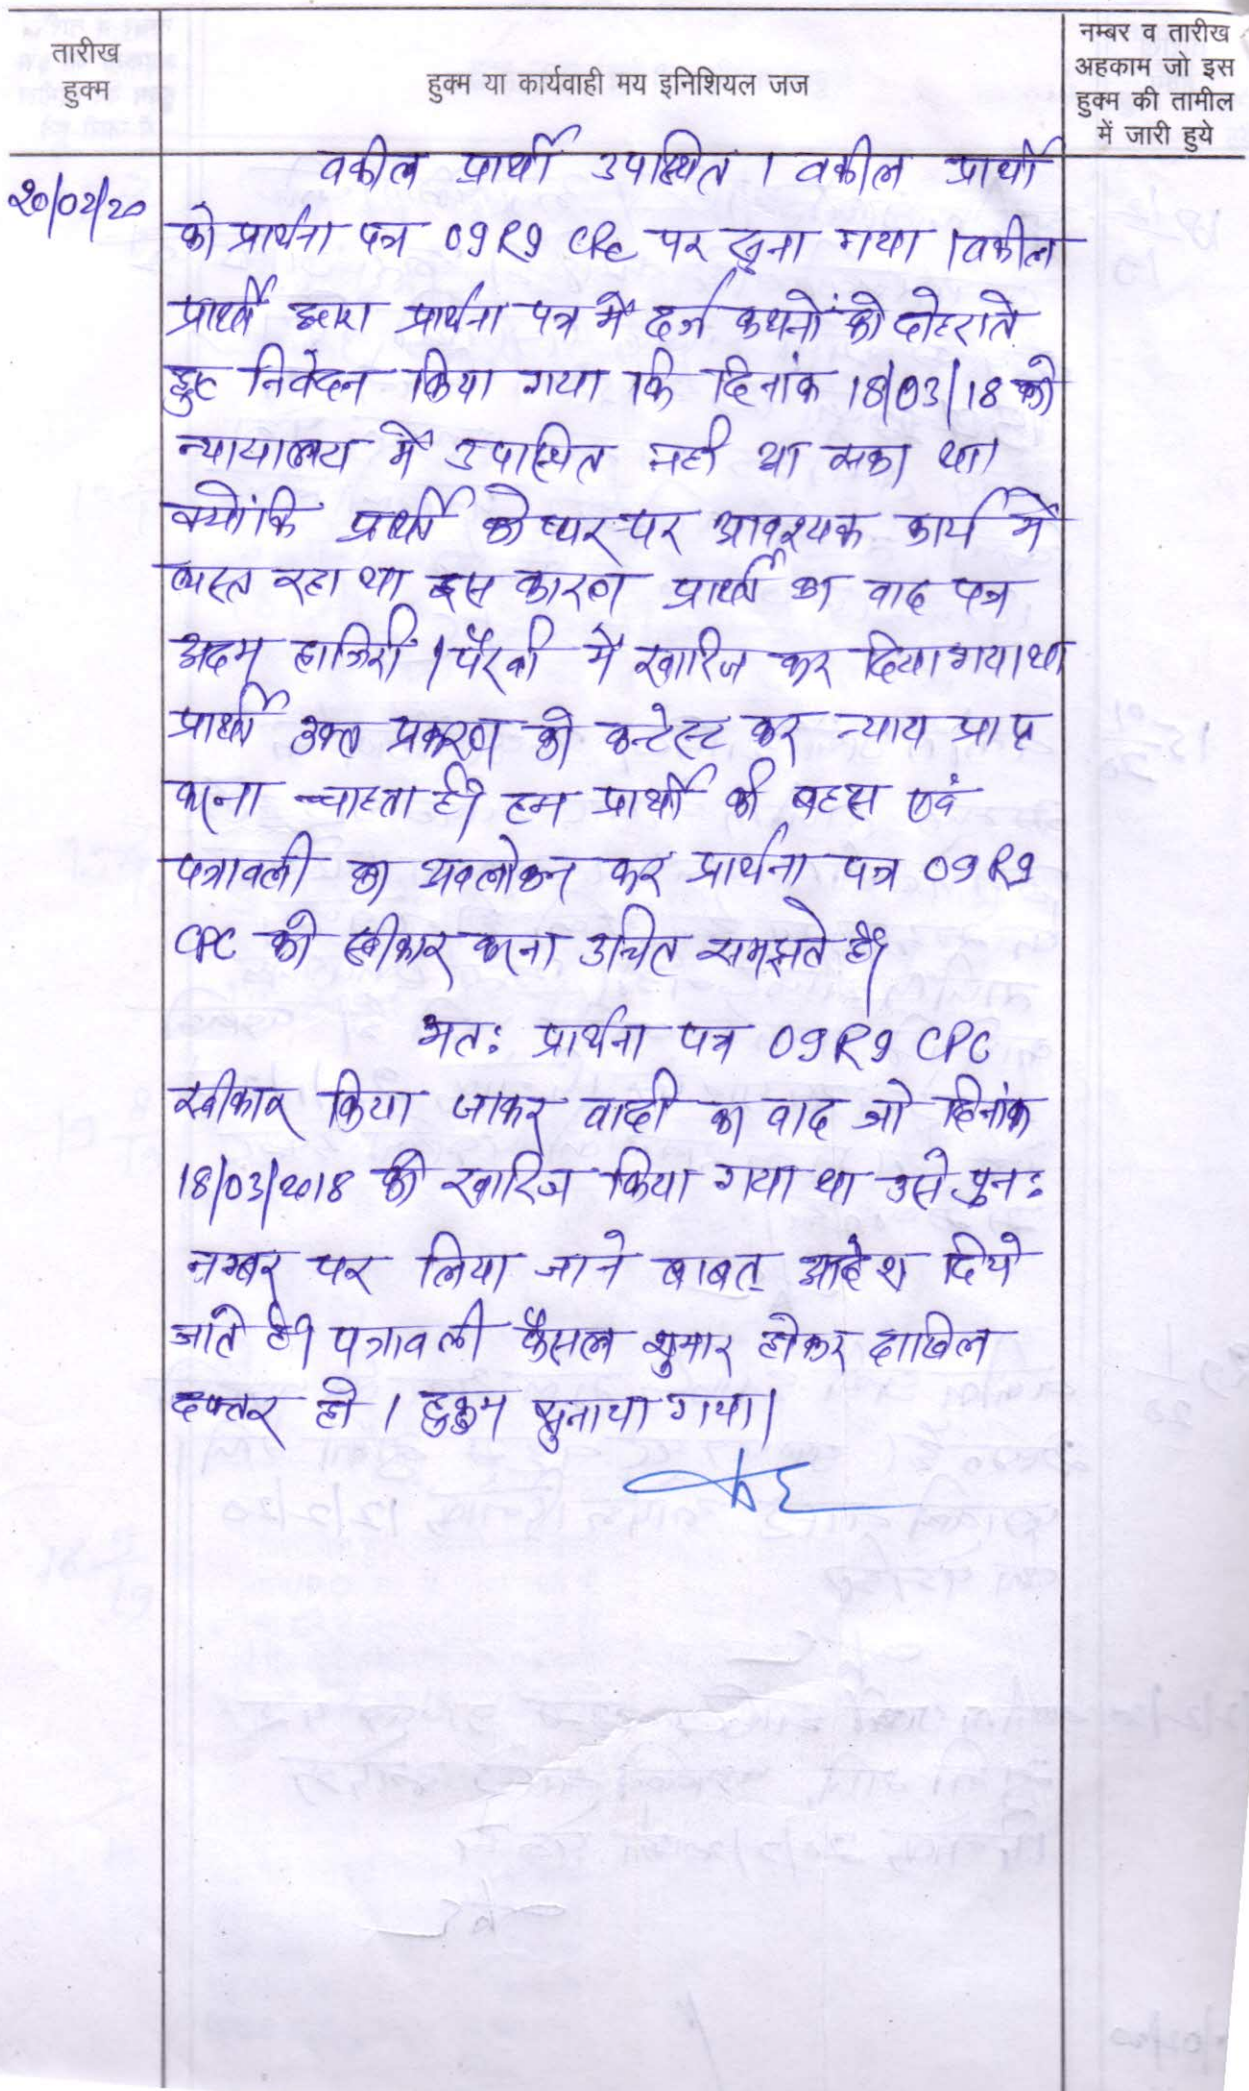 तारीख
हुक्म
हुक्म या कार्यवाही मय इनिशियल जज
नम्बर व तारीख
अहकाम जो इस
हुक्म की तामील
में जारी हुये
20/02/20
वकील प्रार्थी उपस्थित । वकील प्रार्थी
को प्रार्थना पत्र 09R9 CPC पर सुना गया । वकील
प्रार्थी द्वारा प्रार्थना पत्र में दर्ज कथनों को दोहराते
हुए निवेदन किया गया कि दिनांक 18/03/18 को
न्यायालय में उपस्थित नही आ सका था।
क्योंकि प्रार्थी के घर पर आवश्यक कार्य में
व्यस्त रहा था इस कारण प्रार्थी का वाद पत्र
अदम हाजिरी / पैरवी में खारिज कर दिया गया था
प्रार्थी उक्त प्रकरण को कन्टेस्ट कर न्याय प्राप्त
करना चाहता है। हम प्रार्थी की बहस एवं
पत्रावली का अवलोकन कर प्रार्थना पत्र 09R9
CPC को स्वीकार करना उचित समझते है।
अत: प्रार्थना पत्र 09R9 CPC
स्वीकार किया जाकर वादी का वाद जो दिनांक
18/03/2018 को खारिज किया गया था उसे पुन:
नम्बर पर लिया जाने बाबत् आदेश दिये
जाते है। पत्रावली फैसल शुमार होकर दाखिल
दफ्तर हो । हुकुम सुनाया गया।